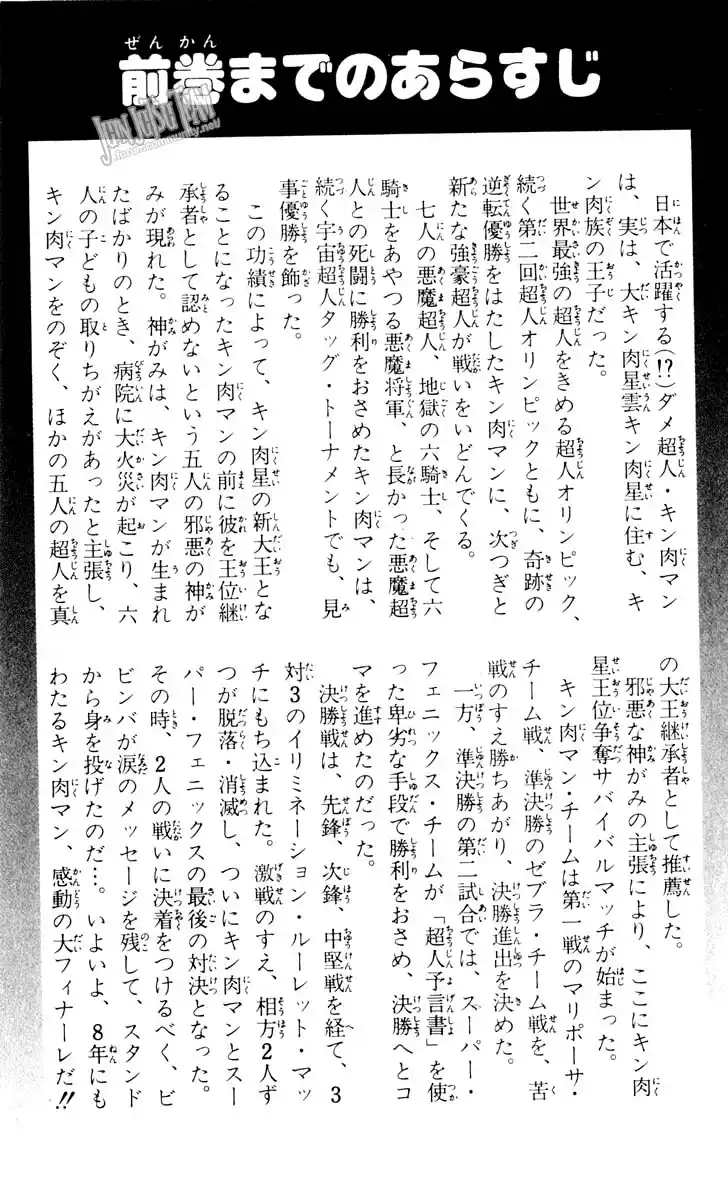 前巻までのあらすじ
日本で活躍する(!?)ダメ超人・キン肉マン
は、実は、大キン肉星雲キン肉星に住む、キ
ン肉族の王子だった。
世界最強の超人をきめる超人オリンピック、
続く第二回超人オリンピックともに、奇跡の
逆転優勝をはたしたキン肉マンに、次つぎと
新たな強豪超人が戦いをいどんでくる。
七人の悪魔超人、地獄の六騎士、そして六
騎士をあやつる悪魔将軍、と長かった悪魔超
人との死闘に勝利をおさめたキン肉マンは、
続く宇宙超人タッグ・トーナメントでも、見
事優勝を飾った。
この功績によって、キン肉星の新大王とな
ることになったキン肉マンの前に彼を王位継
承者として認めないという五人の邪悪の神が
みが現れた。神がみは、キン肉マンが生まれ
たばかりのとき、病院に大火災が起こり、六
人の子どもの取りちがえがあったと主張し、
キン肉マンをのぞく、ほかの五人の超人を真
の大王継承者として推薦した。
邪悪な神がみの主張により、ここにキン肉
星王位争奪サバイバルマッチが始まった。
キン肉マン・チームは第一戦のマリポーサ・
チーム戦、準決勝のゼブラ・チーム戦を、苦
戦のすえ勝ちあがり、決勝進出を決めた。
一方、準決勝の第二試合では、スーパー・
フェニックス・チームが「超人予言書」を使
った卑劣な手段で勝利をおさめ、決勝へとコ
マを進めたのだった。
決勝戦は、先鋒、次鋒、中堅戦を経て、3
対3のイリミネーション・ルーレット・マッ
チにもち込まれた。激戦のすえ、相方2人ず
つが脱落・消滅し、ついにキン肉マンとスー
パー・フェニックスの最後の対決となった。
その時、2人の戦いに決着をつけるべく、ビ
ビンバが涙のメッセージを残して、スタンド
から身を投げたのだ…。いよいよ、8年にも
わたるキン肉マン、感動の大フィナーレだ!!
JumpJustJew
.forumcommunity.net/